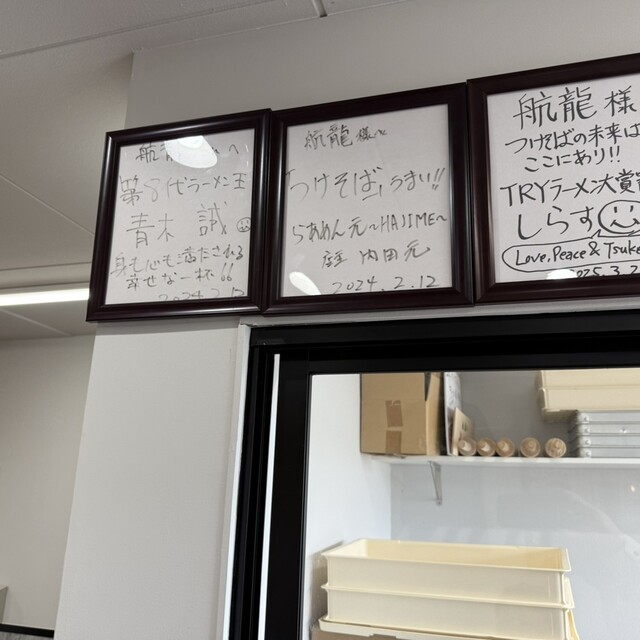 航龍様へ
第8代ラーメン王
青木 誠
身も心も満たされる
幸せな一杯!!
航龍様へ
「つけそば」うまい!!
らあめん元~HAJIME~
店主 内田元
2024.2.12
航龍 様
つけそばの未来は
ここにあり!!
TRYラーメン大賞
しらす
Love, Peace & Tsuke
2025.3.2